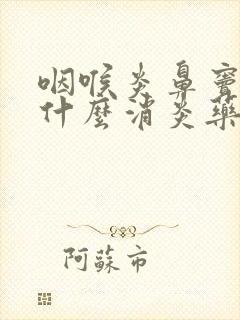 咽喉炎鼻竇
什麼消炎藥
阿蘇市